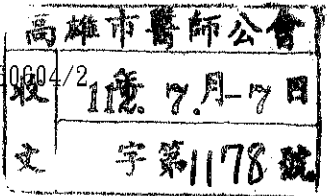 高雄市醫師公會
0604/2
收 112. 7.月-7日
文 字第1178號